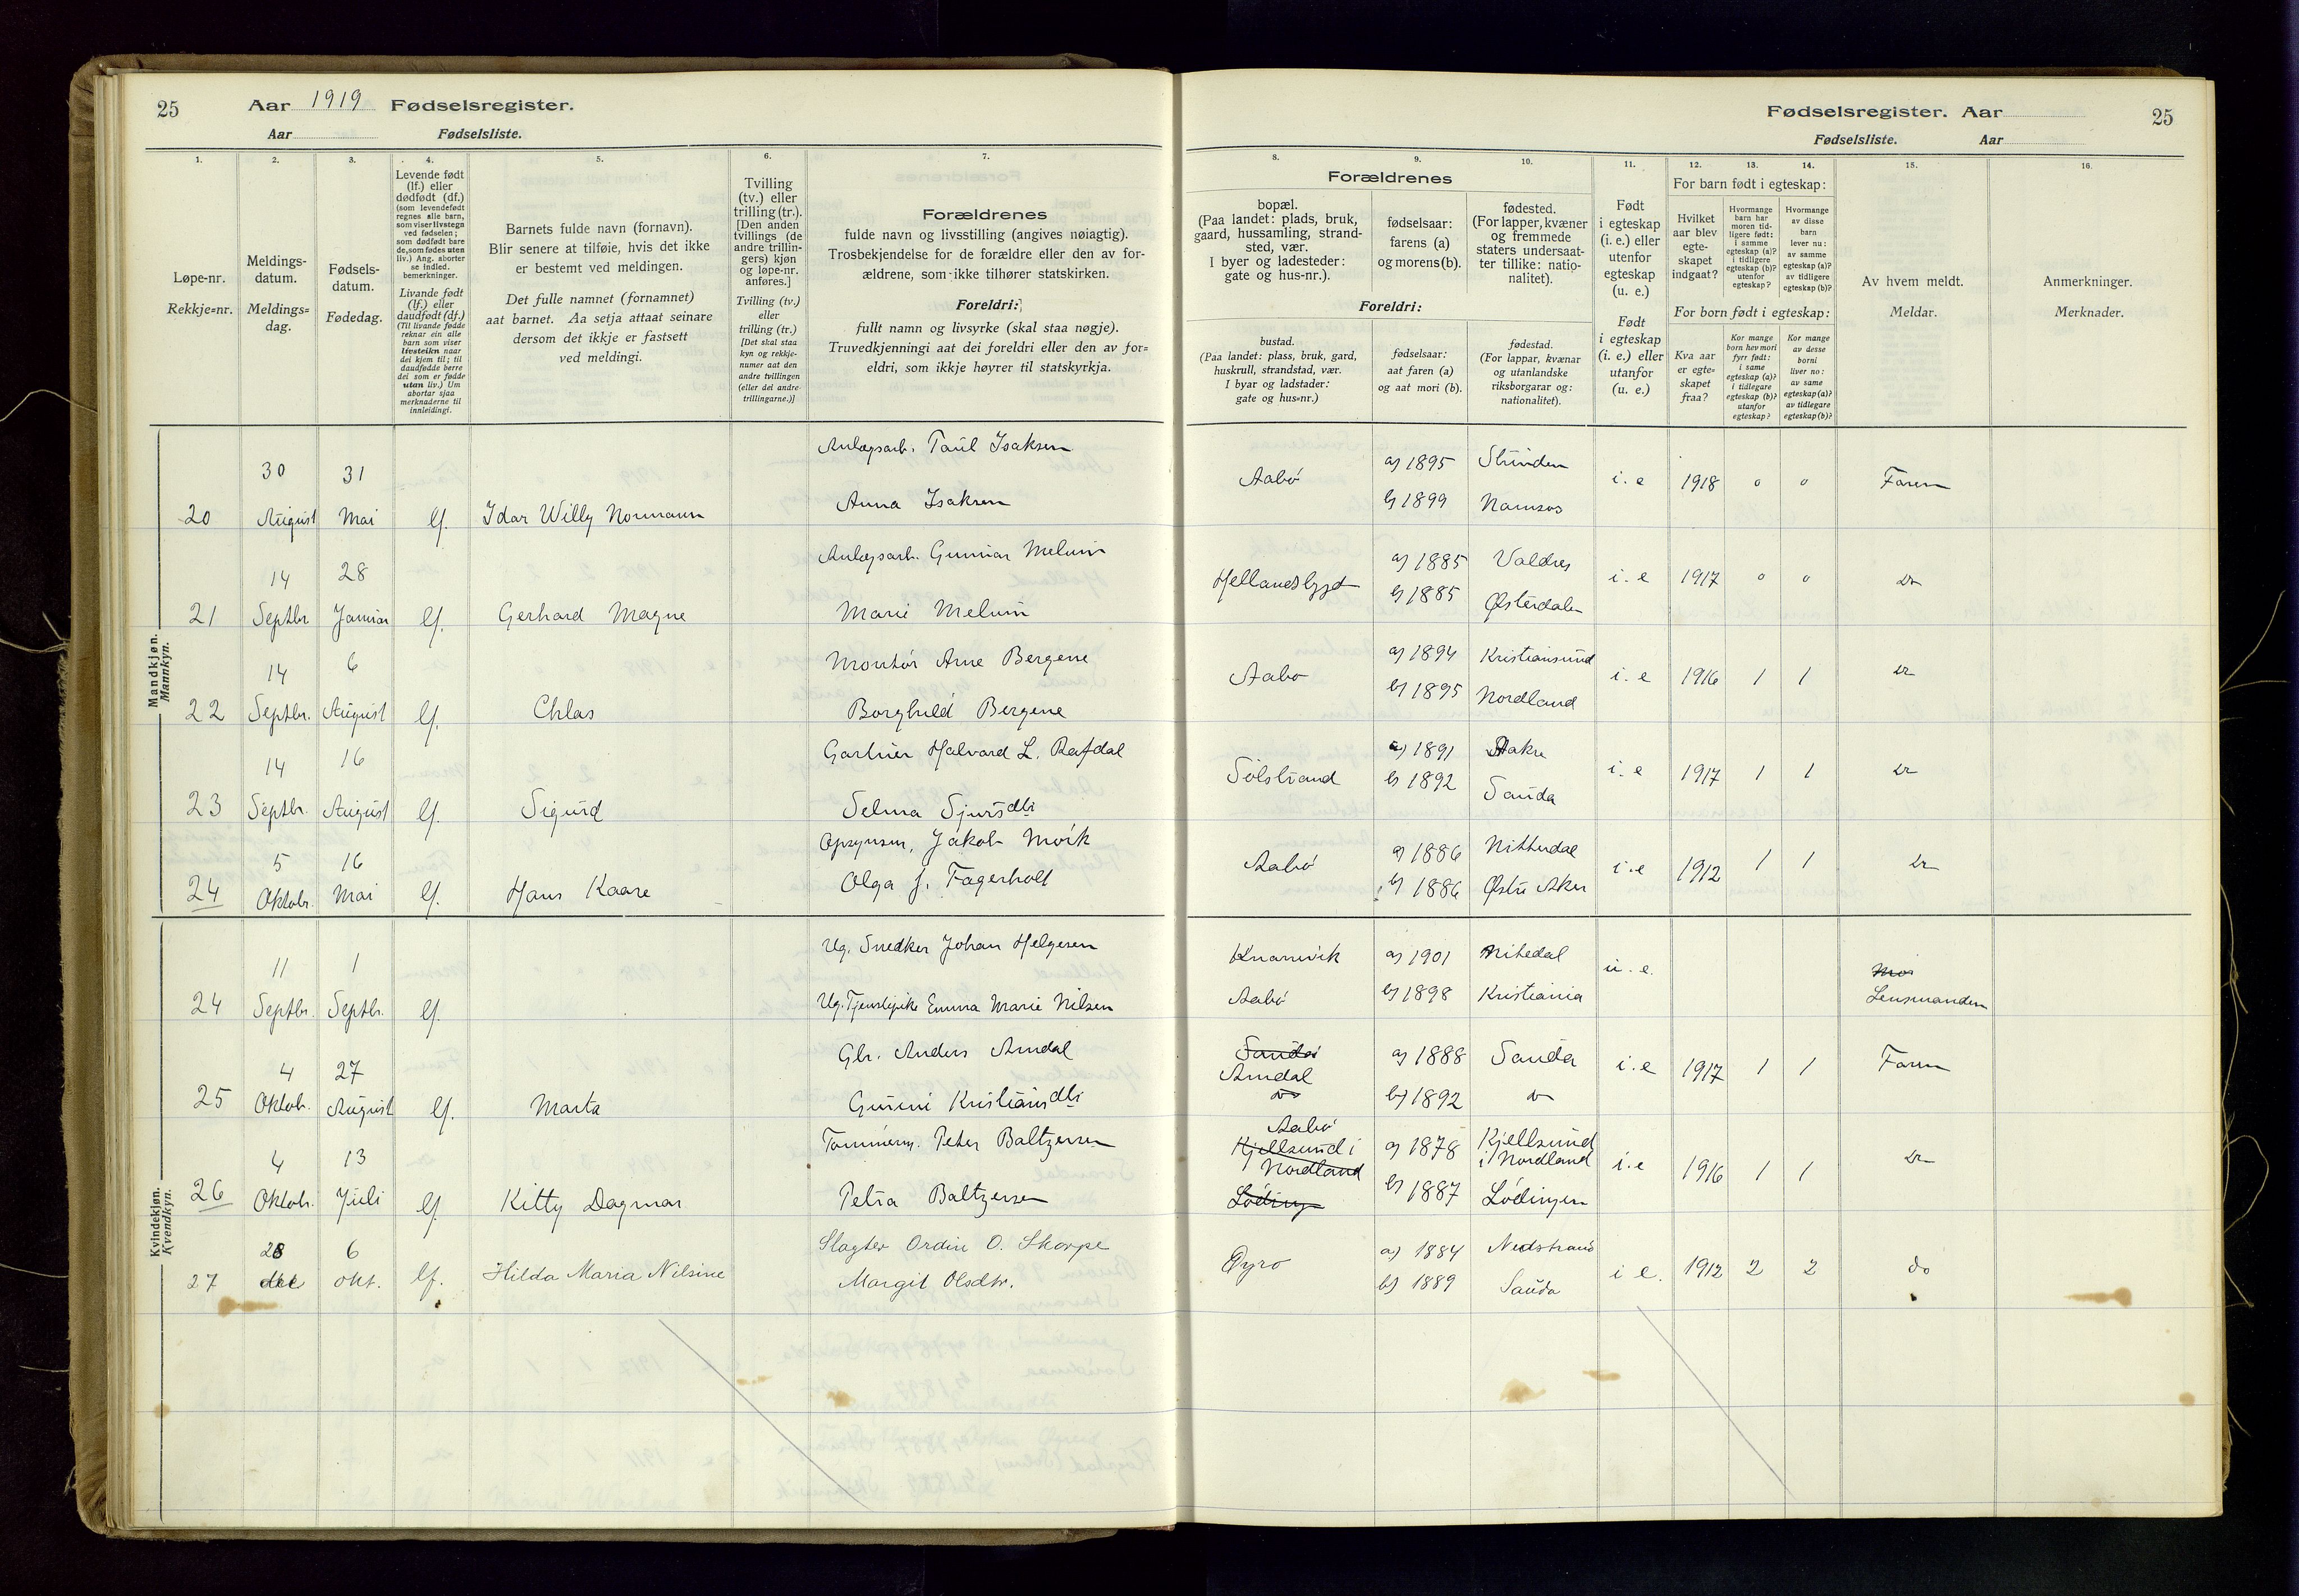 25
Aar 1919 Fødselsregister.
Aar Fødselsliste.
1.
2.
3.
4.
5.
6.
7.
Løpe-nr.
Rekkje=nr.
Meldings-
datum.
Meldings=
dag.
Fødsels-
datum.
Fødedag.
Levende født
(lf.) eller
dødfødt (df.)
(som levendefødt
regnes alle barn,
som viser livstegn
ved fødselen;
som dødfødt bare
de, som fødes uten
liv.) Ang. aborter
se indled.
bemerkninger.
Livande født
(lf.) eller
daudfødt (df.)
(Til livande fødde
reknar ein alle
barn som viser
livsteikn naar
dei kjem til; til
daudfødde berre
dei som er fødde
utan liv.) Um
abortar sjaa
merknaderne til
innleidingi.
Barnets fulde navn (fornavn).
Blir senere at tilføie, hvis det ikke
er bestemt ved meldingen.
Det fulle namnet (fornamnet)
aat barnet. Aa setja attaat seinare
dersom det ikkje er fastsett
ved meldingi.
Tvilling
(tv.) eller
trilling (tr.).
[Den anden
tvillings (de
andre trillin-
gers) kjøn
og løpe-nr.
anføres.]
Tvilling (tv.)
eller
trilling (tr.)
[Det skal staa
kyn og rekkje-
numer aat den
andre tvillingen
(eller dei andre
trillingarne.)]
Forældrenes
fulde navn og livsstilling (angives nøiagtig).
Trosbekjendelse for de forældre eller den av for-
ældrene, som ikke tilhører statskirken.
Foreldri:
fullt namn og livsyrke (skal staa nøgje).
Truvedkjenningi aat dei foreldri eller den av for=
eldri, som ikkje høyrer til statskyrkja.
Mandkjøn.
Mannkyn.
20
30 August
31 Mai
lf.
Idar Willy Normann
Anlægsarb. Paul Isaksen
Anna Isaksen
21
14 Septbr
28 Januar
lf.
Gerhard Magne
Anlægsarb. Gunnar Melum
Marie Melum
22
14 Septbr.
6 August
lf.
Chlas
Montør Arne Bergene
Borghild Bergene
23
14 Septbr.
16 August
lf.
Sigurd
Gartner Halvard L. Rafdal
Selma Sjursdtr
24
5 Oktobr.
16 Mai
lf.
Hans Kaare
Opsynsm. Jakob Moik
Olga f. Fagerholt
Kvindekjøn.
Kvendkyn.
24
11 Septbr.
1 Septbr.
lf.
Ug. Snedker Johan Helgesen
Ug. Tjenestepike Emma Marie Nilsen
25
4 Oktob.
27 August
lf.
Marta
Gbr. Anders Amdal
Guseni Kristiansdtr
26
4 Oktob.
13 Juli
lf.
Kitty Dagmar
Tømmerm. Peter Baltzersen
Petra Baltzersen
27
28 okt
6 okt.
lf.
Hilda Maria Nilsine
Slagter Ordin O. Skorpe
Margit Olsdtr.
Fødselsregister. Aar
25
Fødselsliste. Aar
8.
9.
10.
11.
12.
13.
14.
15.
16.
Forældrenes
bopæl.
(Paa landet: plads, bruk,
gaard, hussamling, strand-
sted, vær.
I byer og ladesteder:
gate og hus-nr.).
fødselsaar:
farens (a)
og morens (b).
fødested.
(For lapper, kvæner
og fremmede
staters undersaat-
ter tillike: natio-
nalitet).
Foreldri:
bustad.
(Paa landet: plass, bruk, gard,
huskrull, strandstad, vær.
I byar og ladstader:
gate og hus=nr.)
fødselsaar:
aat faren (a)
og aat mori (b).
fødestad.
(For lappar, kvænar
og utanlandske
riksborgarar og:
nationalitet).
Født
i egteskap
(i. e.) eller
utenfor
egteskap
(u. e.)
Født
i egteskap
(i. e.) eller
utanfor
(u. e.)
For barn født i egteskap:
Hvilket
aar blev
egte-
skapet
indgaat?
Hvormange
barn har
moren tid-
ligere født:
i samme
egteskap (a)?
i tidligere
egteskap (b)?
utenfor
egteskap?
Hvormange
av disse
barn
lever nu:
av samme
egteskap (a)?
av tidligere
egteskap (b)?
For born født i egteskap:
Kva aar
er egte=
skapet
fraa?
Kor mange
born hev mori
fyrr født:
i same
egteskap (a)?
i tidlegare
egteskap (b)?
utanfor
egteskap?
Kor mange
av desse
borni
liver no:
av same
egteskap (a)?
av tidlegare
egteskap (b)?
Av hvem meldt.
Meldar.
Anmerkninger.
Merknader.
Aabø
a) 1895
b) 1899
Strinden
Namsos
i. e
1918
0
0
Faren
Hellandsbygd
a) 1885
b) 1885
Valdres
Østerdalen
i. e
1917
0
0
do
Aabø
a) 1894
b) 1895
Kristiansund
Nordland
i. e
1916
1
1
do
Solstrand
a) 1891
b) 1892
Aakre
Sauda
i. e
1917
1
1
do
Aabø
a) 1886
b) 1886
Nittedal
Østre Aker
i. e
1912
1
1
do
Knarrvik
Aabø
a) 1901
b) 1898
Nitedal
Kristiania
u. e.
Mor
Lensmanden
Sauda
Amdal
do
a) 1888
b) 1892
Sauda
do
i. e
1917
1
1
Faren
Aabø
Kjellsund i
Nordland
Løding
a) 1878
b) 1887
Kjellsund
i Nordland
Lødingen
i. e
1916
1
1
do
Øyro
a) 1884
b) 1889
Nedstrand
Sauda
i e.
1912
2
2
do